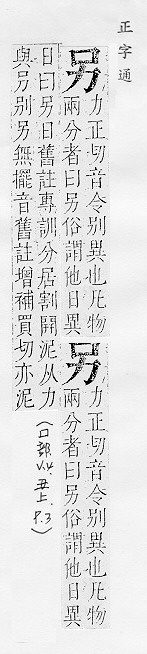 正字通
另 力正切音令別異也凡物
兩分者曰另俗謂他日異
另 力正切音令別異也凡物
兩分者曰另俗謂他日異
日曰另日舊註專訓分居割開泥从力
與叧別另無擺音舊註增補買切亦泥
(口部 V.4. 丑上. P.3)